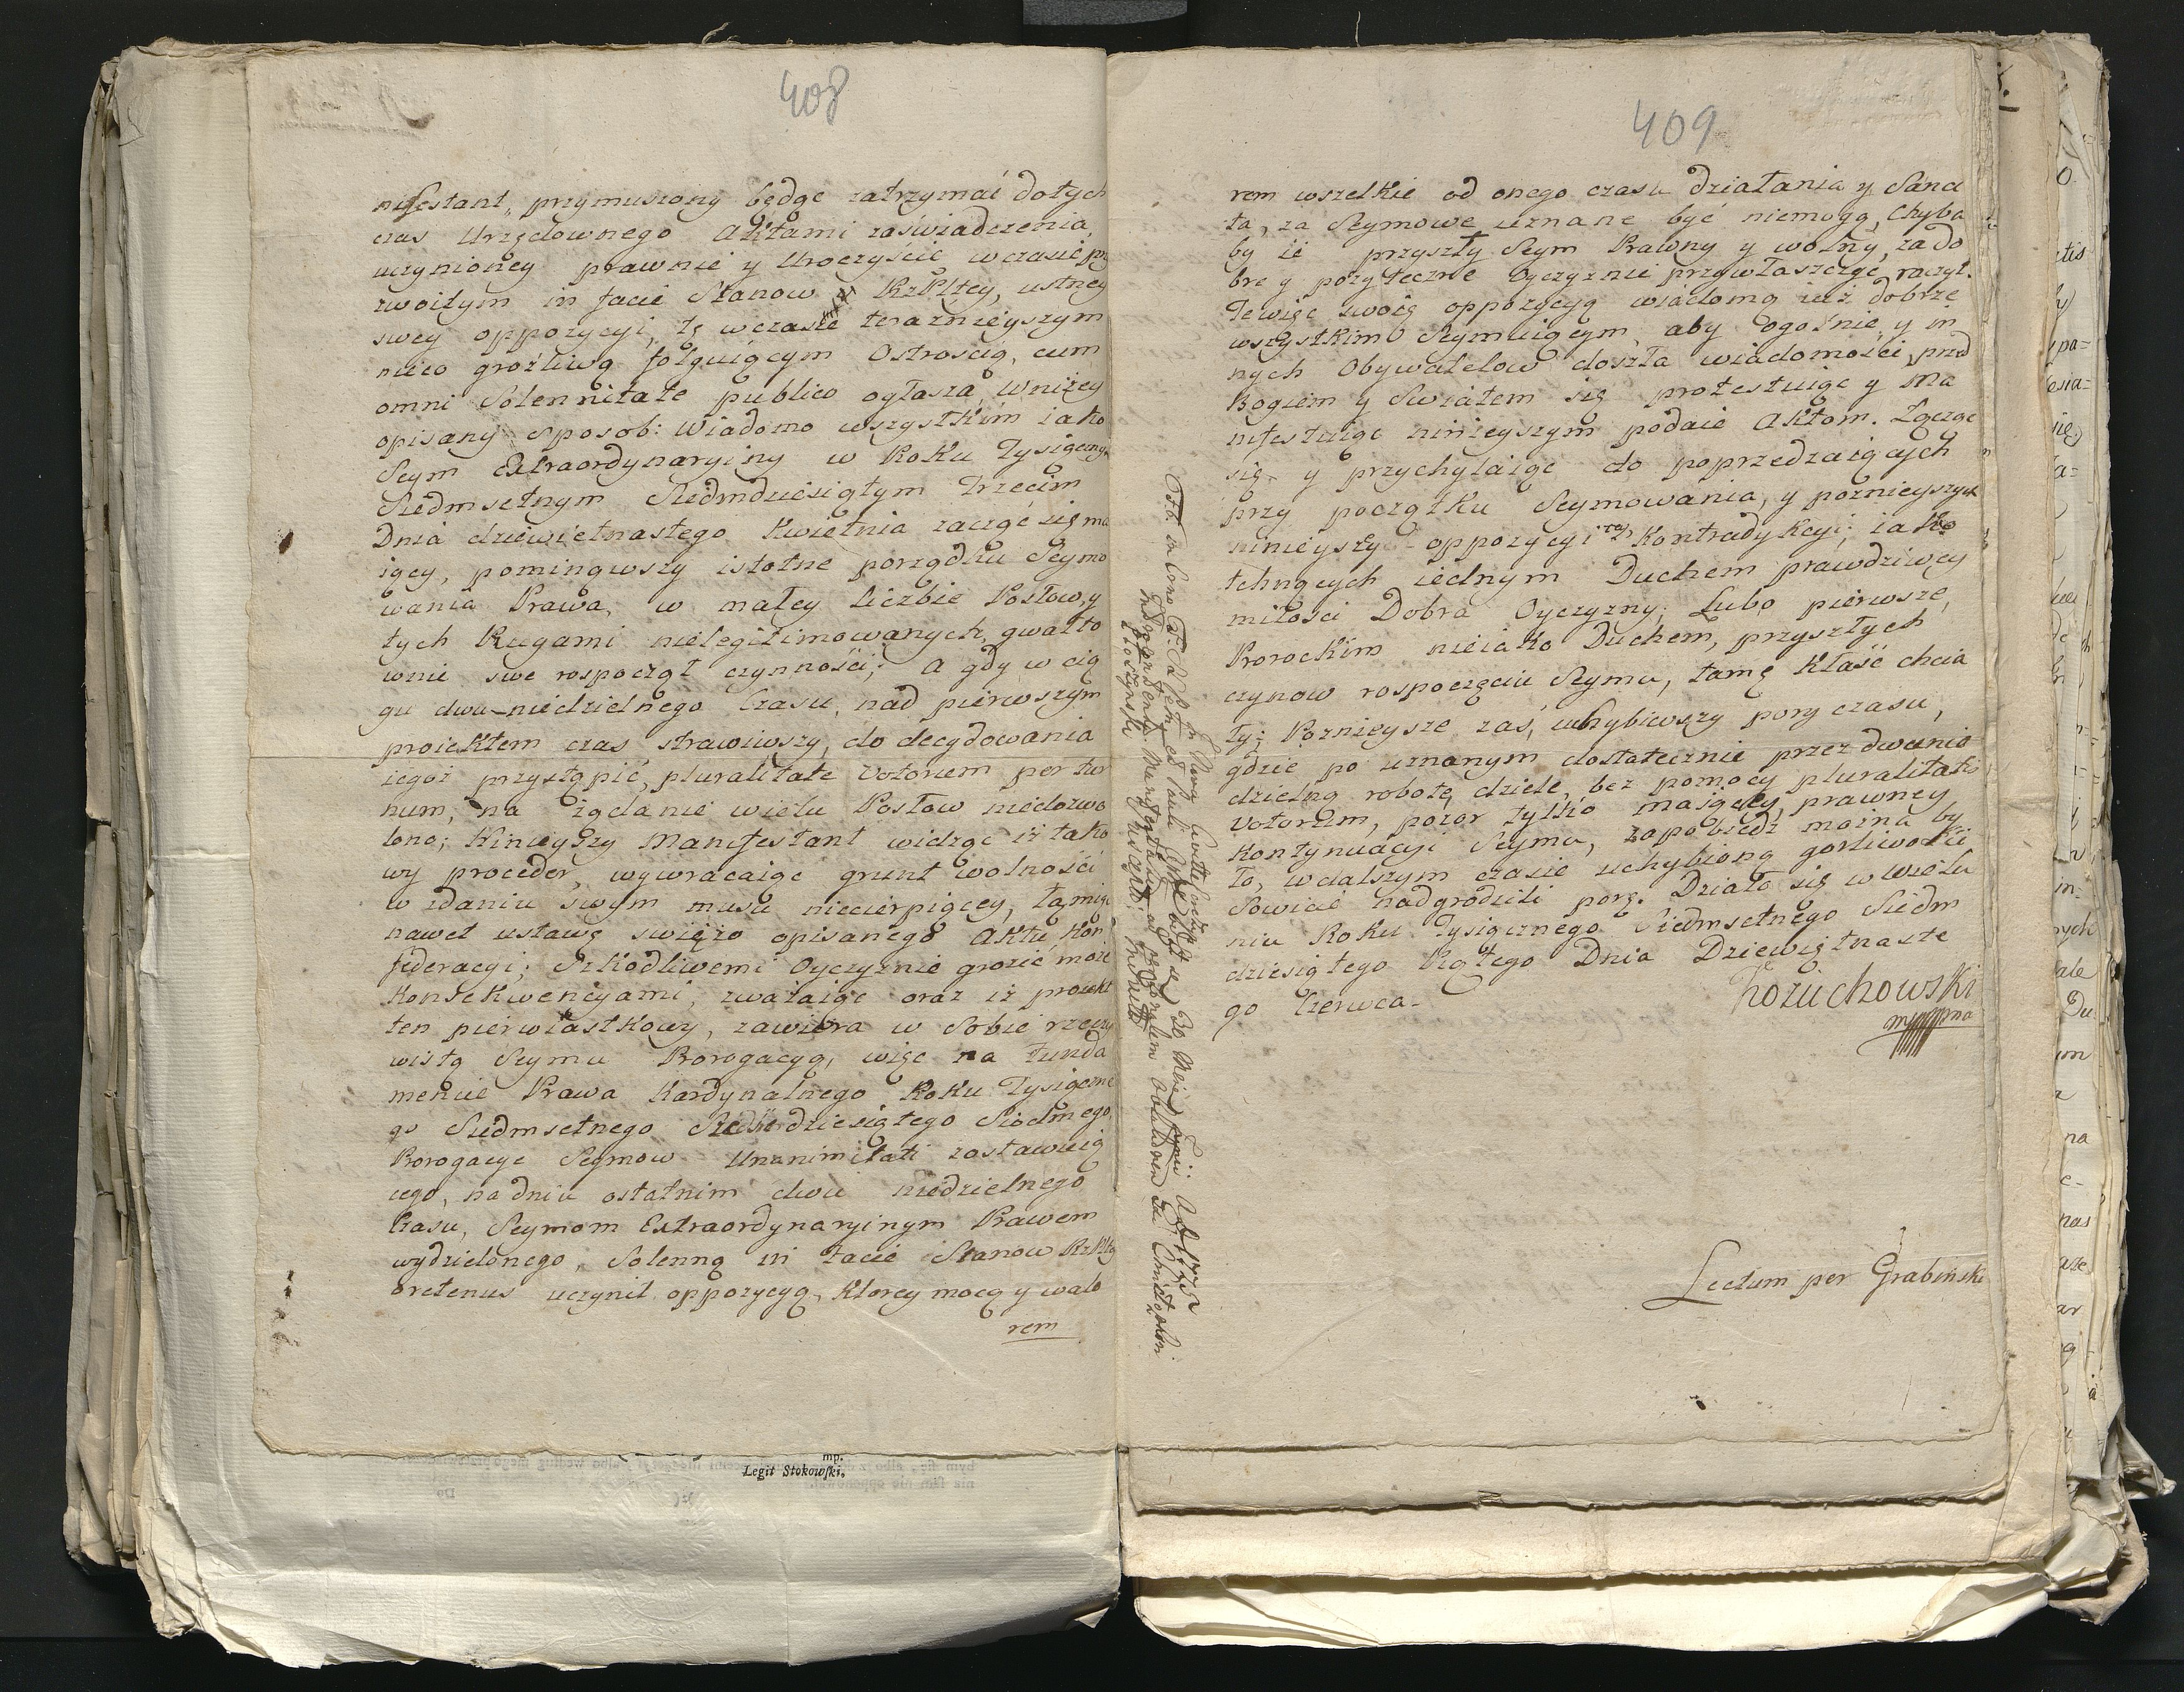 408
nifestant, przymuszony będąc zatrzymać dotych
czas Urzędownego Aktami zaświadczenia,
uczynioney prawnie y Uroczyście w czasie prz
zwoitym in facie Stanow RzPltey, ustney
swey oppozycyi, tę w czasie teraznieyszym
nieco groźliwą folguiącym Ostrością, cum
omni Solennitate publico ogłasza, w niżey
opisany sposob: Wiadomo wszystkim iako
Seym Extraordynaryiny w Roku Tysiącznym
Siedmsetnym Siedmdziesiątym Trzecim
Dnia dziewiętnastego Kwietnia zacząć się ma
iący, pominąwszy istotne porządku Seymo
wania Prawa, w małey liczbie Posłow, y
tych Rugami nielegitimowanych, gwałto
wnie swe rospoczął czynności; A gdy w cią
gu dwu-niedzielnego Czasu, nad pierwszym
proiektem czas strawiwszy, do decydowania
iegoż przystąpić, pluralitate Votorum per tur
num, na żądanie wielu Posłow niedozwo
lono; Ninieyszy Manifestant widząc iż tako
wy proceder, wywracaiąc grunt wolności
w zdaniu swym musu niecierpiącey, łamiąc
nawet ustawę swieżo opisanego Aktu Kon
federacyi; Szkodliwemi Oyczyznie grozić może
Konsekwencyami, zważaiąc oraz iż proiekt
ten pierwiastkowy, zawiera w Sobie rzeczy
wistą Seymu Prorogacyą, więc na funda
mencie Prawa Kardynalnego Roku Tysiączne
go Siedmsetnego Sześćdziesiątego Siodmego,
Prorogacye Seymow Unanimitati zostawuią
cego, na dniu ostatnim dwu niedzielnego
Czasu, Seymom Extraordynaryinym Prawem
wydzielonego, Solenną in facie Stanow RzPltey
oretenus uczynił oppozycyą, Ktorey mocą y walo
rem
mp.
Legit Stokowski.
409
rem wszelkie od onego czasu działania y Sanci
ta, za Seymowe uznane być niemogą, Chyba
by ie przyszły Seym Prawny y wolny, za do
bre y pożyteczne Oyczyznie przywłaszczyć raczył.
Te więc swoię oppozycyą wiadomą iuż dobrze
wszystkim Seymuiącym, aby ogolnie y in
nych Obywatelow doszła wiadomości, przed
Bogiem y Swiatem się protestuiąc y Ma
nifestuiąc ninieyszym podaie Aktom. Łącząc
się y przychylaiąc do poprzedzaiących
przy początku Seymowania, y poznieyszych
ninieyszy oppozycyi Kontradykcyi; iako
tchnących iednym Duchem prawdziwey
miłości Dobra Oyczyzny; Lubo pierwsze,
Prorockim nieiako Duchem, przyszłych
czynow rospoczęciu Seymu, tamę kłaść chcia
ły; Poznieysze zaś, uchybiwszy pory czasu,
gdzie po uznanym dostatecznie przez dwunie
dzielną robotę, dziele, bez pomocy pluralitatis
Votorum, pozor tylko maiącey, prawney
Kontynuacyi Seymu, zapobiedz można by
ło, w dalszym czasie uchybioną gorliwości
Sowicie nadgrodzili porę. Działo się w Wielu
niu Roku Tysiącznego Siedmsetnego Siedm
dziesiątego Piątego Dnia Dziewiętnaste
go Czerwca.
Kożuchowski
mppma
Lectum per Grabiński